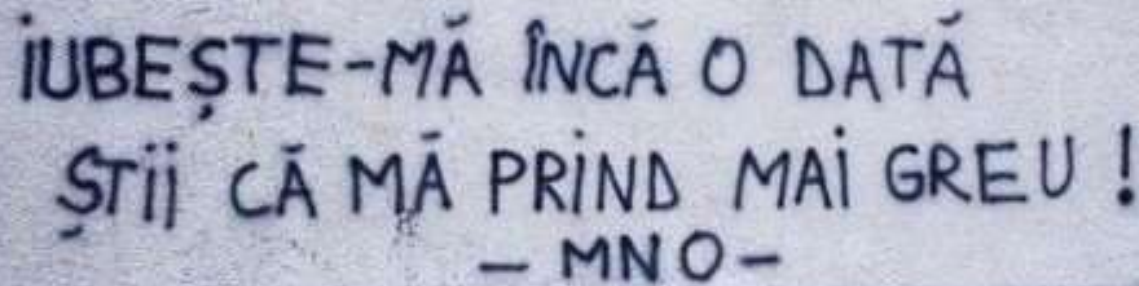 IUBEȘTE-MĂ ÎNCĂ O DATĂ
ȘTII CĂ MĂ PRIND MAI GREU !
- MNO -